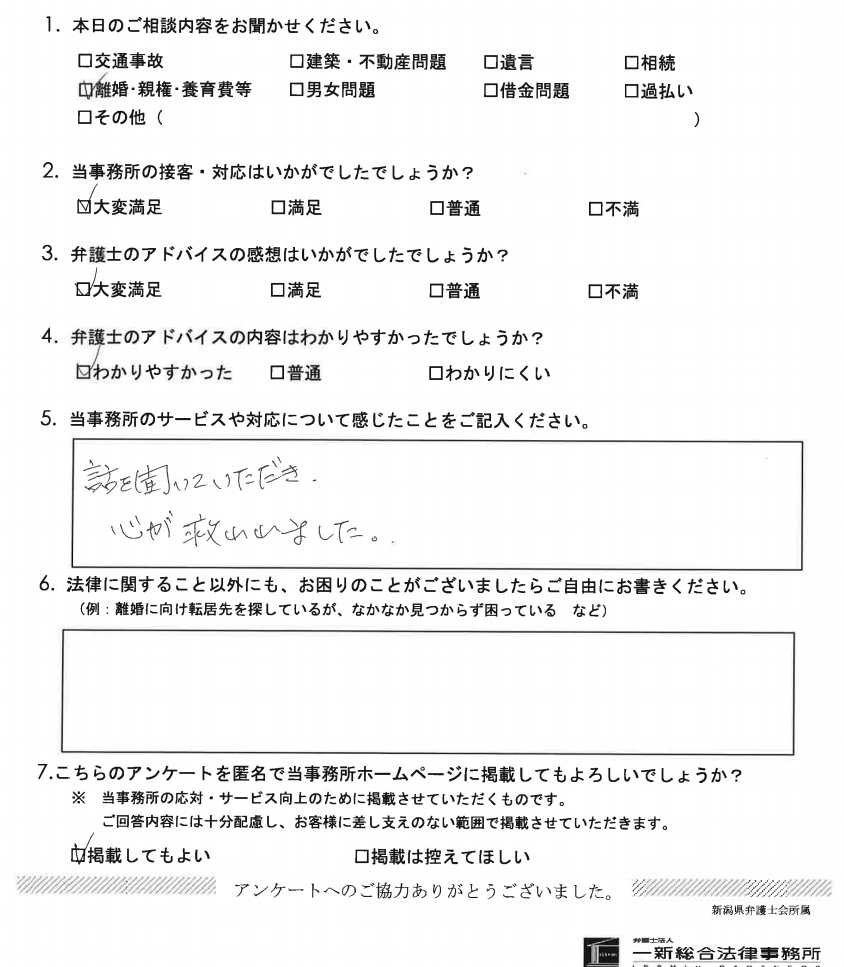 1. 本日のご相談内容をお聞かせください。
□交通事故 □建築・不動産問題 □遺言 □相続
☑離婚・親権・養育費等 □男女問題 □借金問題 □過払い
□その他（ ）
2. 当事務所の接客・対応はいかがでしたでしょうか？
☑大変満足 □満足 □普通 □不満
3. 弁護士のアドバイスの感想はいかがでしたでしょうか？
☑大変満足 □満足 □普通 □不満
4. 弁護士のアドバイスの内容はわかりやすかったでしょうか？
☑わかりやすかった □普通 □わかりにくい
5. 当事務所のサービスや対応について感じたことをご記入ください。
話を聞いていただき、
心が救われました。
6. 法律に関すること以外にも、お困りのことがございましたらご自由にお書きください。
（例：離婚に向け転居先を探しているが、なかなか見つからず困っている　など）
7.こちらのアンケートを匿名で当事務所ホームページに掲載してもよろしいでしょうか？
※ 当事務所の応対・サービス向上のために掲載させていただくものです。
ご回答内容には十分配慮し、お客様に差し支えのない範囲で掲載させていただきます。
☑掲載してもよい □掲載は控えてほしい
アンケートへのご協力ありがとうございました。
新潟県弁護士会所属
弁護士法人
一新総合法律事務所